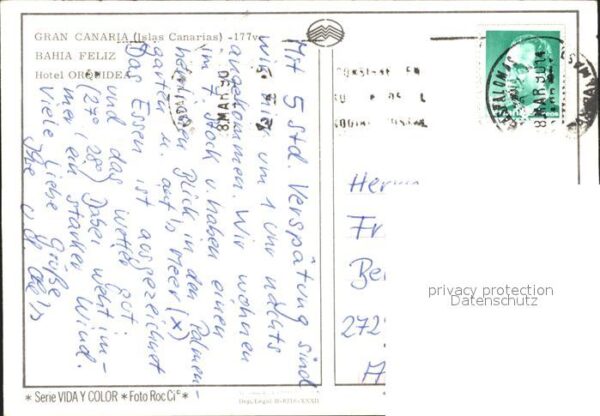 GRAN CANARIA (Islas Canarias) -177v
BAHIA FELIZ
Hotel ORQUIDEA
Mit 5 std. Verspätung sind
wir hier um 1 Uhr nachts
angekommen. Wir wohnen
im 7. Stock u. haben einen
herrlichen Blick in den Palmen-
garten u. aufs Meer (x)
Das Essen ist ausgezeichnet
und das Wetter gut
(27°-28°) Dabei weht im-
mer ein starker Wind.
Viele liebe Grüße
Ilse u.
8 MAR 90
MASPALOMAS
8 MAR 90 14
Herrn
Fr
Be
272
A
privacy protection
Datenschutz
* Serie VIDA Y COLOR * Foto Roc Ci° *